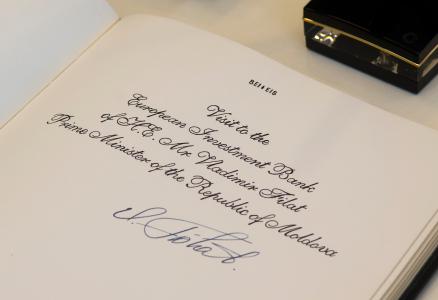 BEI♦EIB
Visit to the
European Investment Bank
of H.E. Mr. Vladimir Filat
Prime Minister of the Republic of Moldova